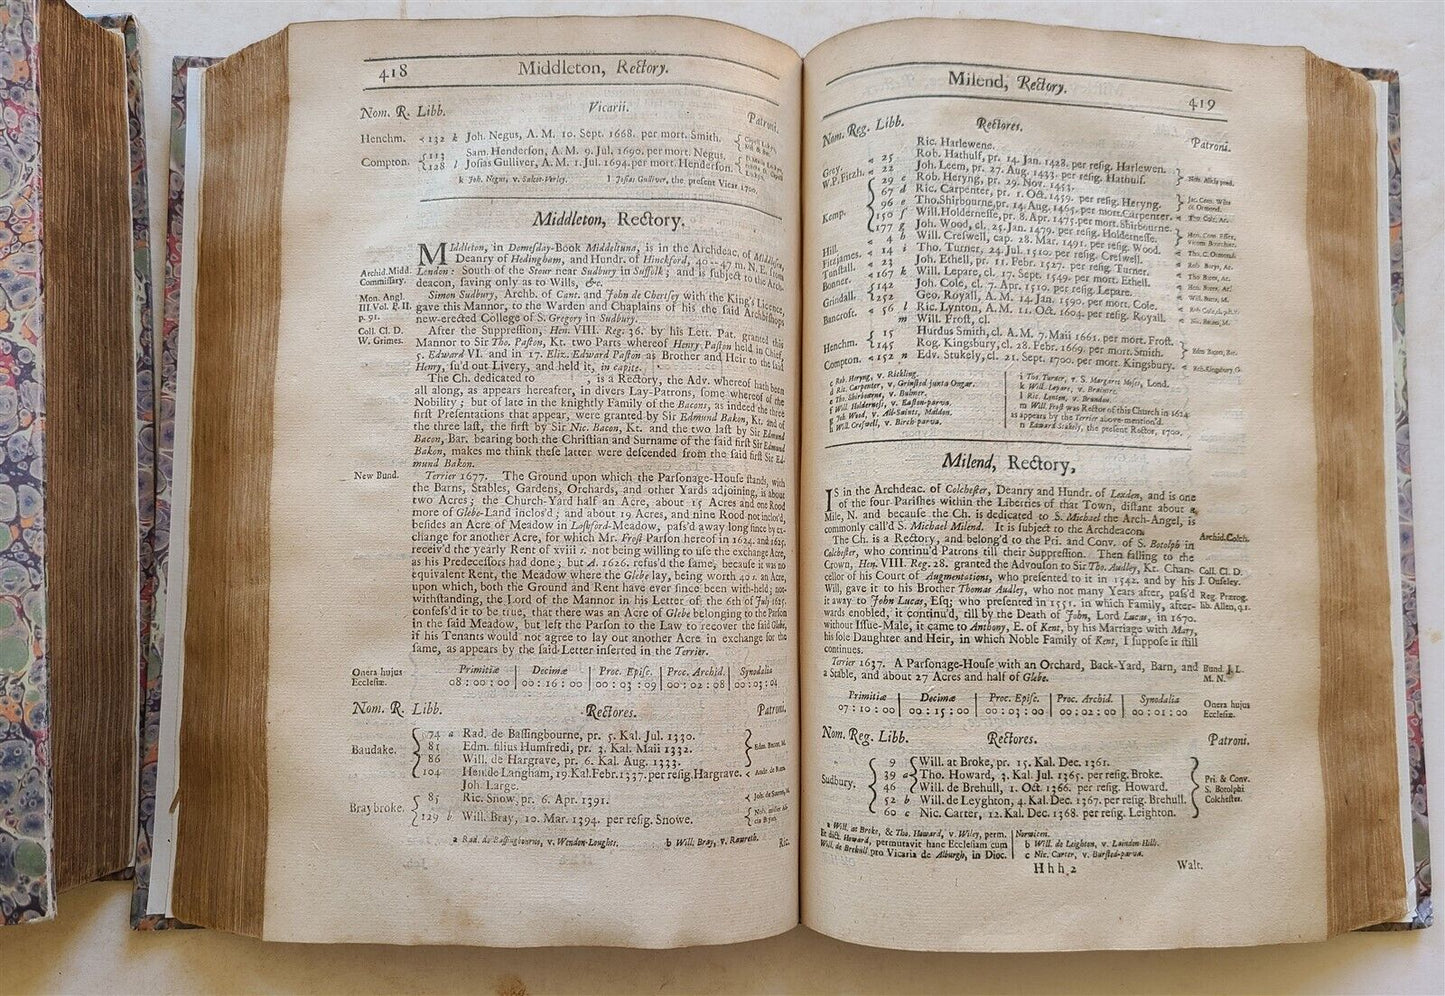 418 Middleton, Rectory.
Nom. R. Libb. Vicarii. Patroni.
Henchm. 132 k Joh. Negus, A. M. 10. Sept. 1668. per mort. Smith.
Compton. 113 Sam. Henderson, A. M. 9. Jul. 1690. per mort. Negus.
128 l Josias Gulliver, A. M. 1. Jul. 1694. per mort. Henderson.
k Joh. Negus, v. l Josias Gulliver, the present Vicar, 1700.
Middleton, Rectory.
MIddleton, in Domesday-Book Middeltuna, is in the Archdeac. of Middlesex,
Deanry of Hedingham, and Hundr. of Hinckford, 40 - 47 m. N. E. from
Archid. Midd. London: South of the Stour near Sudbury in Suffolk; and is subject to the Arch-
Commissary. deacon, saving only as to Wills, &c.
Mon. Angl. Simon Sudbury, Archb. of Cant. and John de Chertsey with the King's Licence,
III Vol. P. II. gave this Mannor, to the Warden and Chaplains of his the said Archbishops
p. 91. new-erected College of S. Gregory in Sudbury.
Coll. Cl. D. After the Suppression, Hen. VIII. Reg. 36. by his Lett. Pat. granted this
W. Grimes. Mannor to Sir Tho. Paston, Kt. two Parts whereof Henry Paston held in Chief,
5. Edward VI. and in 17. Eliz. Edward Paston as Brother and Heir to the said
Henry, su'd out Livery, and held it, in capite.
The Ch. dedicated to , is a Rectory, the Adv. whereof hath been
all along, as appears hereafter, in divers Lay-Patrons, some whereof of the
Nobility; but of late in the knightly Family of the Bacons, as indeed the three
first Presentations that appear, were granted by Sir Edmund Bakon, Kt. and of
the three last, the first by Sir Nic. Bacon, Kt. and the two last by Sir Edmund
Bacon, Bar. bearing both the Christian and Surname of the said first Sir Edmund
Bakon, makes me think these latter were descended from the said first Sir Ed-
mund Bakon.
New Bund. Terrier 1677. The Ground upon which the Parsonage-House stands, with
the Barns, Stables, Gardens, Orchards, and other Yards adjoining, is about
two Acres; the Church-Yard half an Acre, about 15 Acres and one Rood
more of Glebe-Land inclos'd; and about 19 Acres, and nine Rood not inclos'd,
besides an Acre of Meadow in Lashford-Meadow, pass'd away long since by ex-
change for another Acre, for which Mr. Frost Parson hereof in 1624. and 1625.
receiv'd the yearly Rent of xviii s. not being willing to use the exchange Acre,
as his Predecessors had done; but A. 1626. refus'd the same, because it was no
equivalent Rent, the Meadow where the Glebe lay, being worth 40 s. an Acre,
upon which, both the Ground and Rent have ever since been with-held; not-
withstanding, the Lord of the Mannor in his Letter of the 6th of July 1625.
confess'd it to be true, that there was an Acre of Glebe belonging to the Parson
in the said Meadow, but left the Parson to the Law to recover the said Glebe,
if his Tenants would not agree to lay out another Acre in exchange for the
same, as appears by the said Letter inserted in the Terrier.
Onera hujus Primitiæ Decimæ Proc. Episc. Proc. Archid. Synodalia
Ecclesiæ. 08 : 00 : 00 00 : 16 : 00 00 : 03 : 09 00 : 02 : 08 00 : 03 : 04
Nom. R. Libb. Rectores. Patroni.
Baudake. 74 a Rad. de Bassingbourne, pr. 5. Kal. Jul. 1330.
81 Edm. filius Humfredi, pr. 3. Kal. Maii 1332. Edm. Bacon, M.
86 Will. de Hargrave, pr. 6. Kal. Aug. 1333.
104 Hen. de Langham, 19. Kal. Febr. 1337. per resig. Hargrave.
Joh. Large.
Braybroke. 85 Ric. Snow, pr. 6. Apr. 1391.
129 b Will. Bray, 10. Mar. 1394. per resig. Snowe.
a Rad. de Bassingbourne, v. Wenden-Loughts. b Will. Bray, v. Raureth. Ric.
Milend, Rectory. 419
Nom. Reg. Libb. Rectores. Patroni.
Ric. Harlewene.
Grey. 25 Rob. Hathulf, pr. 14. Jan. 1428. per resig. Harlewen.
W.P. Fitzh. 22 Joh. Leem, pr. 27. Aug. 1433. per resig. Hathulf.
Kemp. 29 c Rob. Heryng, pr. 29. Nov. 1453.
67 d Ric. Carpenter, pr. 1. Oct. 1459. per resig. Heryng.
96 e Tho. Shirbourne, pr. 14. Aug. 1465. per mort. Carpenter.
150 f Will. Holdernesse, pr. 8. Apr. 1475. per mort. Shirbourne.
177 g Joh. Wood, cl. 25. Jan. 1479. per resig. Holdernesse.
Hill. 4 h Will. Creswell, cap. 28. Mar. 1491. per resig. Wood.
Fitzjames. 14 i Tho. Turner, 24. Jul. 1510. per resig. Creswell.
Tonstall. 23 Joh. Ethell, pr. 11. Febr. 1527. per resig. Turner.
Bonner. 167 k Will. Lepare, cl. 17. Sept. 1549. per mort. Ethell.
Grindall. 142 Joh. Cole, cl. 7. Apr. 1510. per resig. Lepare.
252 Geo. Royall, A. M. 14. Jan. 1590. per mort. Cole.
Bancroft. 56 l Ric. Lynton, A. M. 11. Oct. 1604. per resig. Royall.
m Will. Frost, cl.
Henchm. 15 Hurdus Smith, cl. A. M. 7. Maii 1661. per mort. Frost.
145 Rog. Kingsbury, cl. 28. Febr. 1669. per mort. Smith. Edm Bacon, Bar.
Compton. 152 n Edv. Stukely, cl. 21. Sept. 1700. per mort. Kingsbury.
c Rob. Heryng, v. Rickling. i Tho. Turner, v. S. Margaret Moses, Lond.
d Ric. Carpenter, v. Grinsted juxta Ongar. k Will. Lepare, v.
e Tho. Shirbourne, v. Bulmer. l Ric. Lynton, v.
f Will. Holderness, v. Easton-parva. m Will. Frost was Rector of this Church in 1624.
g Joh. Wood, v. All-Saints, Maldon. as appears by the Terrier above-mention'd.
h Will. Creswell, v. Birch-parva. n Edward Stukely, the present Rector, 1700.
Milend, Rectory,
IS in the Archdeac. of Colchester, Deanry and Hundr. of Lexden, and is one
of the four Parishes within the Liberties of that Town, distant about a
Mile, N. and because the Ch. is dedicated to S. Michael the Arch-Angel, is
commonly call'd S. Michael Milend. It is subject to the Archdeacon. Archid. Colch.
The Ch. is a Rectory, and belong'd to the Pri. and Conv. of S. Botolph in
Colchester, who continu'd Patrons till their Suppression. Then falling to the
Crown, Hen. VIII. Reg. 28. granted the Advouson to Sir Tho. Audley, Kt. Chan- Coll. Cl. D.
cellor of his Court of Augmentations, who presented to it in 1542. and by his J. Ouseley.
Will, gave it to his Brother Thomas Audley, who not many Years after, pass'd Reg. Prærog.
it away to John Lucas, Esq; who presented in 1551. in which Family, after- lib. Allen, q. 1.
wards enobled, it continu'd, till by the Death of John, Lord Lucas, in 1670.
without Issue-Male, it came to Anthony, E. of Kent, by his Marriage with Mary,
his sole Daughter and Heir, in which Noble Family of Kent, I suppose it still
continues.
Terrier 1637. A Parsonage-House with an Orchard, Back-Yard, Barn, and Bund. J. L.
a Stable, and about 27 Acres and half of Glebe. M. N.
Primitiæ Decimæ Proc. Episc. Proc. Archid. Synodalia Onera hujus
07 : 10 : 00 00 : 15 : 00 00 : 03 : 00 00 : 02 : 00 00 : 01 : 00 Ecclesiæ.
Nom. Reg. Libb. Rectores. Patroni.
Sudbury. 9 Will. at Broke, pr. 15. Kal. Dec. 1361.
39 a Tho. Howard, 3. Kal. Jul. 1365. per resig. Broke. Pri. & Conv.
46 Will. de Brehull, 1. Oct. 1366. per resig. Howard. S. Botolphi
52 b Will. de Leyghton, 4. Kal. Dec. 1367. per resig. Brehull. Colchester.
60 c Nic. Carter, 12. Kal. Dec. 1368. per resig. Leighton.
a Will. at Broke, & Tho. Howard, v. Wiley, perm. Norwicen.
Et dict. Howard, permutavit hanc Ecclesiam cum b Will. de Leighton, v. Laindon-Hills.
Will. de Brehull pro Vicaria de Alburgh, in Dioc. c Nic. Carter, v. Bursted-parva.
H h h 2 Walt.